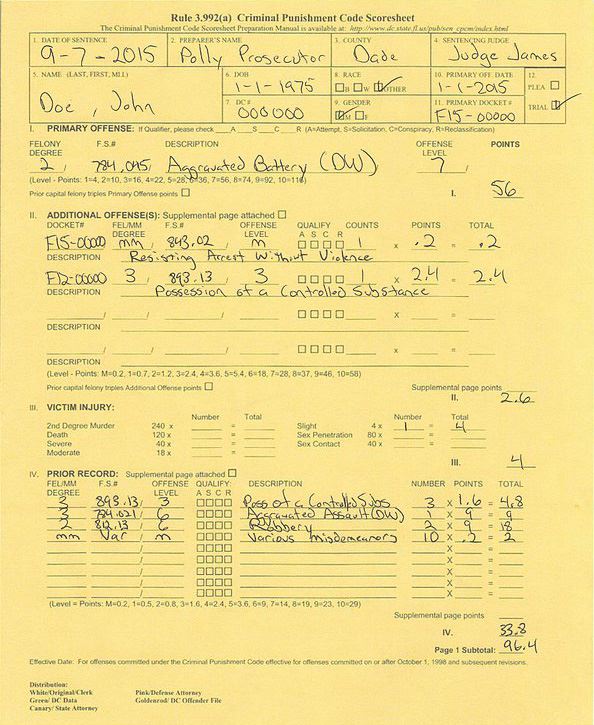 Rule 3.992(a) Criminal Punishment Code Scoresheet
The Criminal Punishment Code Scoresheet Preparation Manual is available at: http://www.dc.state.fl.us/pub/sen_cpcm/index.html
1. DATE OF SENTENCE 2. PREPARER'S NAME 3. COUNTY 4. SENTENCING JUDGE
9-7-2015 Polly Prosecutor Dade Judge James
5. NAME (LAST, FIRST, MI.I.) 6. DOB 8. RACE 10. PRIMARY OFF. DATE 12.
Doe, John 1-1-1975 B W OTHER 1-1-2015 PLEA
7. DC # 9. GENDER 11. PRIMARY DOCKET # TRIAL
000000 M F F15-00000
I. PRIMARY OFFENSE: If Qualifier, please check A S C R (A=Attempt, S=Solicitation, C=Conspiracy, R=Reclassification)
FELONY DEGREE F.S.# DESCRIPTION OFFENSE LEVEL POINTS
2 / 784.045/ Aggravated Battery (DW) 7 /
(Level - Points: 1=4, 2=10, 3=16, 4=22, 5=28, 6=36, 7=56, 8=74, 9=92, 10=116)
Prior capital felony triples Primary Offense points I. 56
II. ADDITIONAL OFFENSE(S): Supplemental page attached
DOCKET# FEL/MM DEGREE F.S.# OFFENSE LEVEL QUALIFY A S C R COUNTS POINTS TOTAL
F15-00000 mm / 843.02 / m 1 x .2 = .2
DESCRIPTION Resisting Arrest Without Violence
F12-00000 3 / 893.13 / 3 1 x 2.4 = 2.4
DESCRIPTION Possession of a Controlled Substance
/ / x =
DESCRIPTION
/ / x =
DESCRIPTION
(Level - Points: M=0.2, 1=0.7, 2=1.2, 3=2.4, 4=3.6, 5=5.4, 6=18, 7=28, 8=37, 9=46, 10=58)
Prior capital felony triples Additional Offense points Supplemental page points
II. 2.6
III. VICTIM INJURY:
Number Total Number Total
2nd Degree Murder 240 x = Slight 4 x 1 = 4
Death 120 x = Sex Penetration 80 x =
Severe 40 x = Sex Contact 40 x =
Moderate 18 x =
III. 4
IV. PRIOR RECORD: Supplemental page attached
FEL/MM DEGREE F.S.# OFFENSE LEVEL QUALIFY: A S C R DESCRIPTION NUMBER POINTS TOTAL
3 893.13/ 3 Poss of a Controlled Subs 3 X 1.6 = 4.8
3 784.021/ 6 Aggravated Assault (DW) 1 X 9 = 9
2 812.13/ 6 Robbery 2 X 9 = 18
mm Var / m Various misdemeanors 10 X .2 = 2
(Level = Points: M=0.2, 1=0.5, 2=0.8, 3=1.6, 4=2.4, 5=3.6, 6=9, 7=14, 8=19, 9=23, 10=29)
Supplemental page points
IV. 33.8
Page 1 Subtotal: 96.4
Effective Date: For offenses committed under the Criminal Punishment Code effective for offenses committed on or after October 1, 1998 and subsequent revisions.
Distribution:
White/Original/Clerk Pink/Defense Attorney
Green/ DC Data Goldenrod/ DC Offender File
Canary/ State Attorney